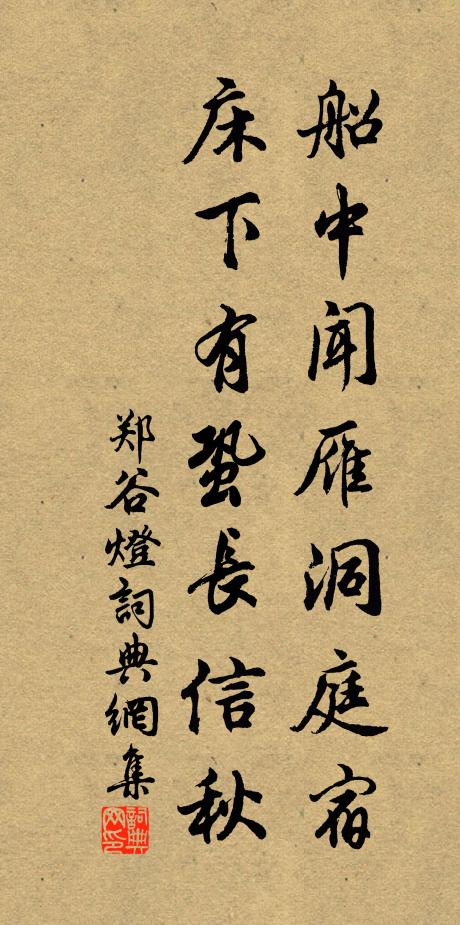 船中闻雁洞庭宿
床下有蛩长信秋
郑谷燈詞典網集
詞典网印